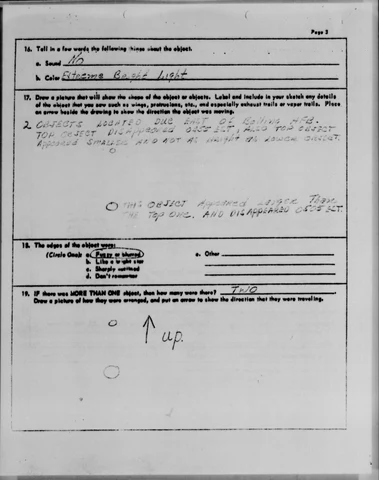 Page 3
16. Tell in a few words the following things about the object.
a. Sound No
b. Color Extreme Bright Light
17. Draw a picture that will show the shape of the object or objects. Label and include in your sketch any details
of the object that you saw such as wings, protrusions, etc., and especially exhaust trails or vapor trails. Place
an arrow beside the drawing to show the direction the object was moving.
2 OBJECTS LOCATED DUE EAST OF Bolling AFB.
TOP OBJECT DISAPPEARED EST, ALSO TOP OBJECT
APPEARED SMALLER AND NOT AS bright AS LOWER OBJECT.
THIS OBJECT APPEARED LARGER THAN
THE TOP ONE. AND DISAPPEARED EST.
18. The edges of the object were:
(Circle One): a. Fuzzy or blurred
b. Like a bright star
c. Sharply outlined
d. Don't remember
e. Other
19. IF there was MORE THAN ONE object, then how many were there? TWO
Draw a picture of how they were arranged, and put an arrow to show the direction that they were traveling.
up.